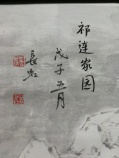 祁连家园
戊子五月
长虹